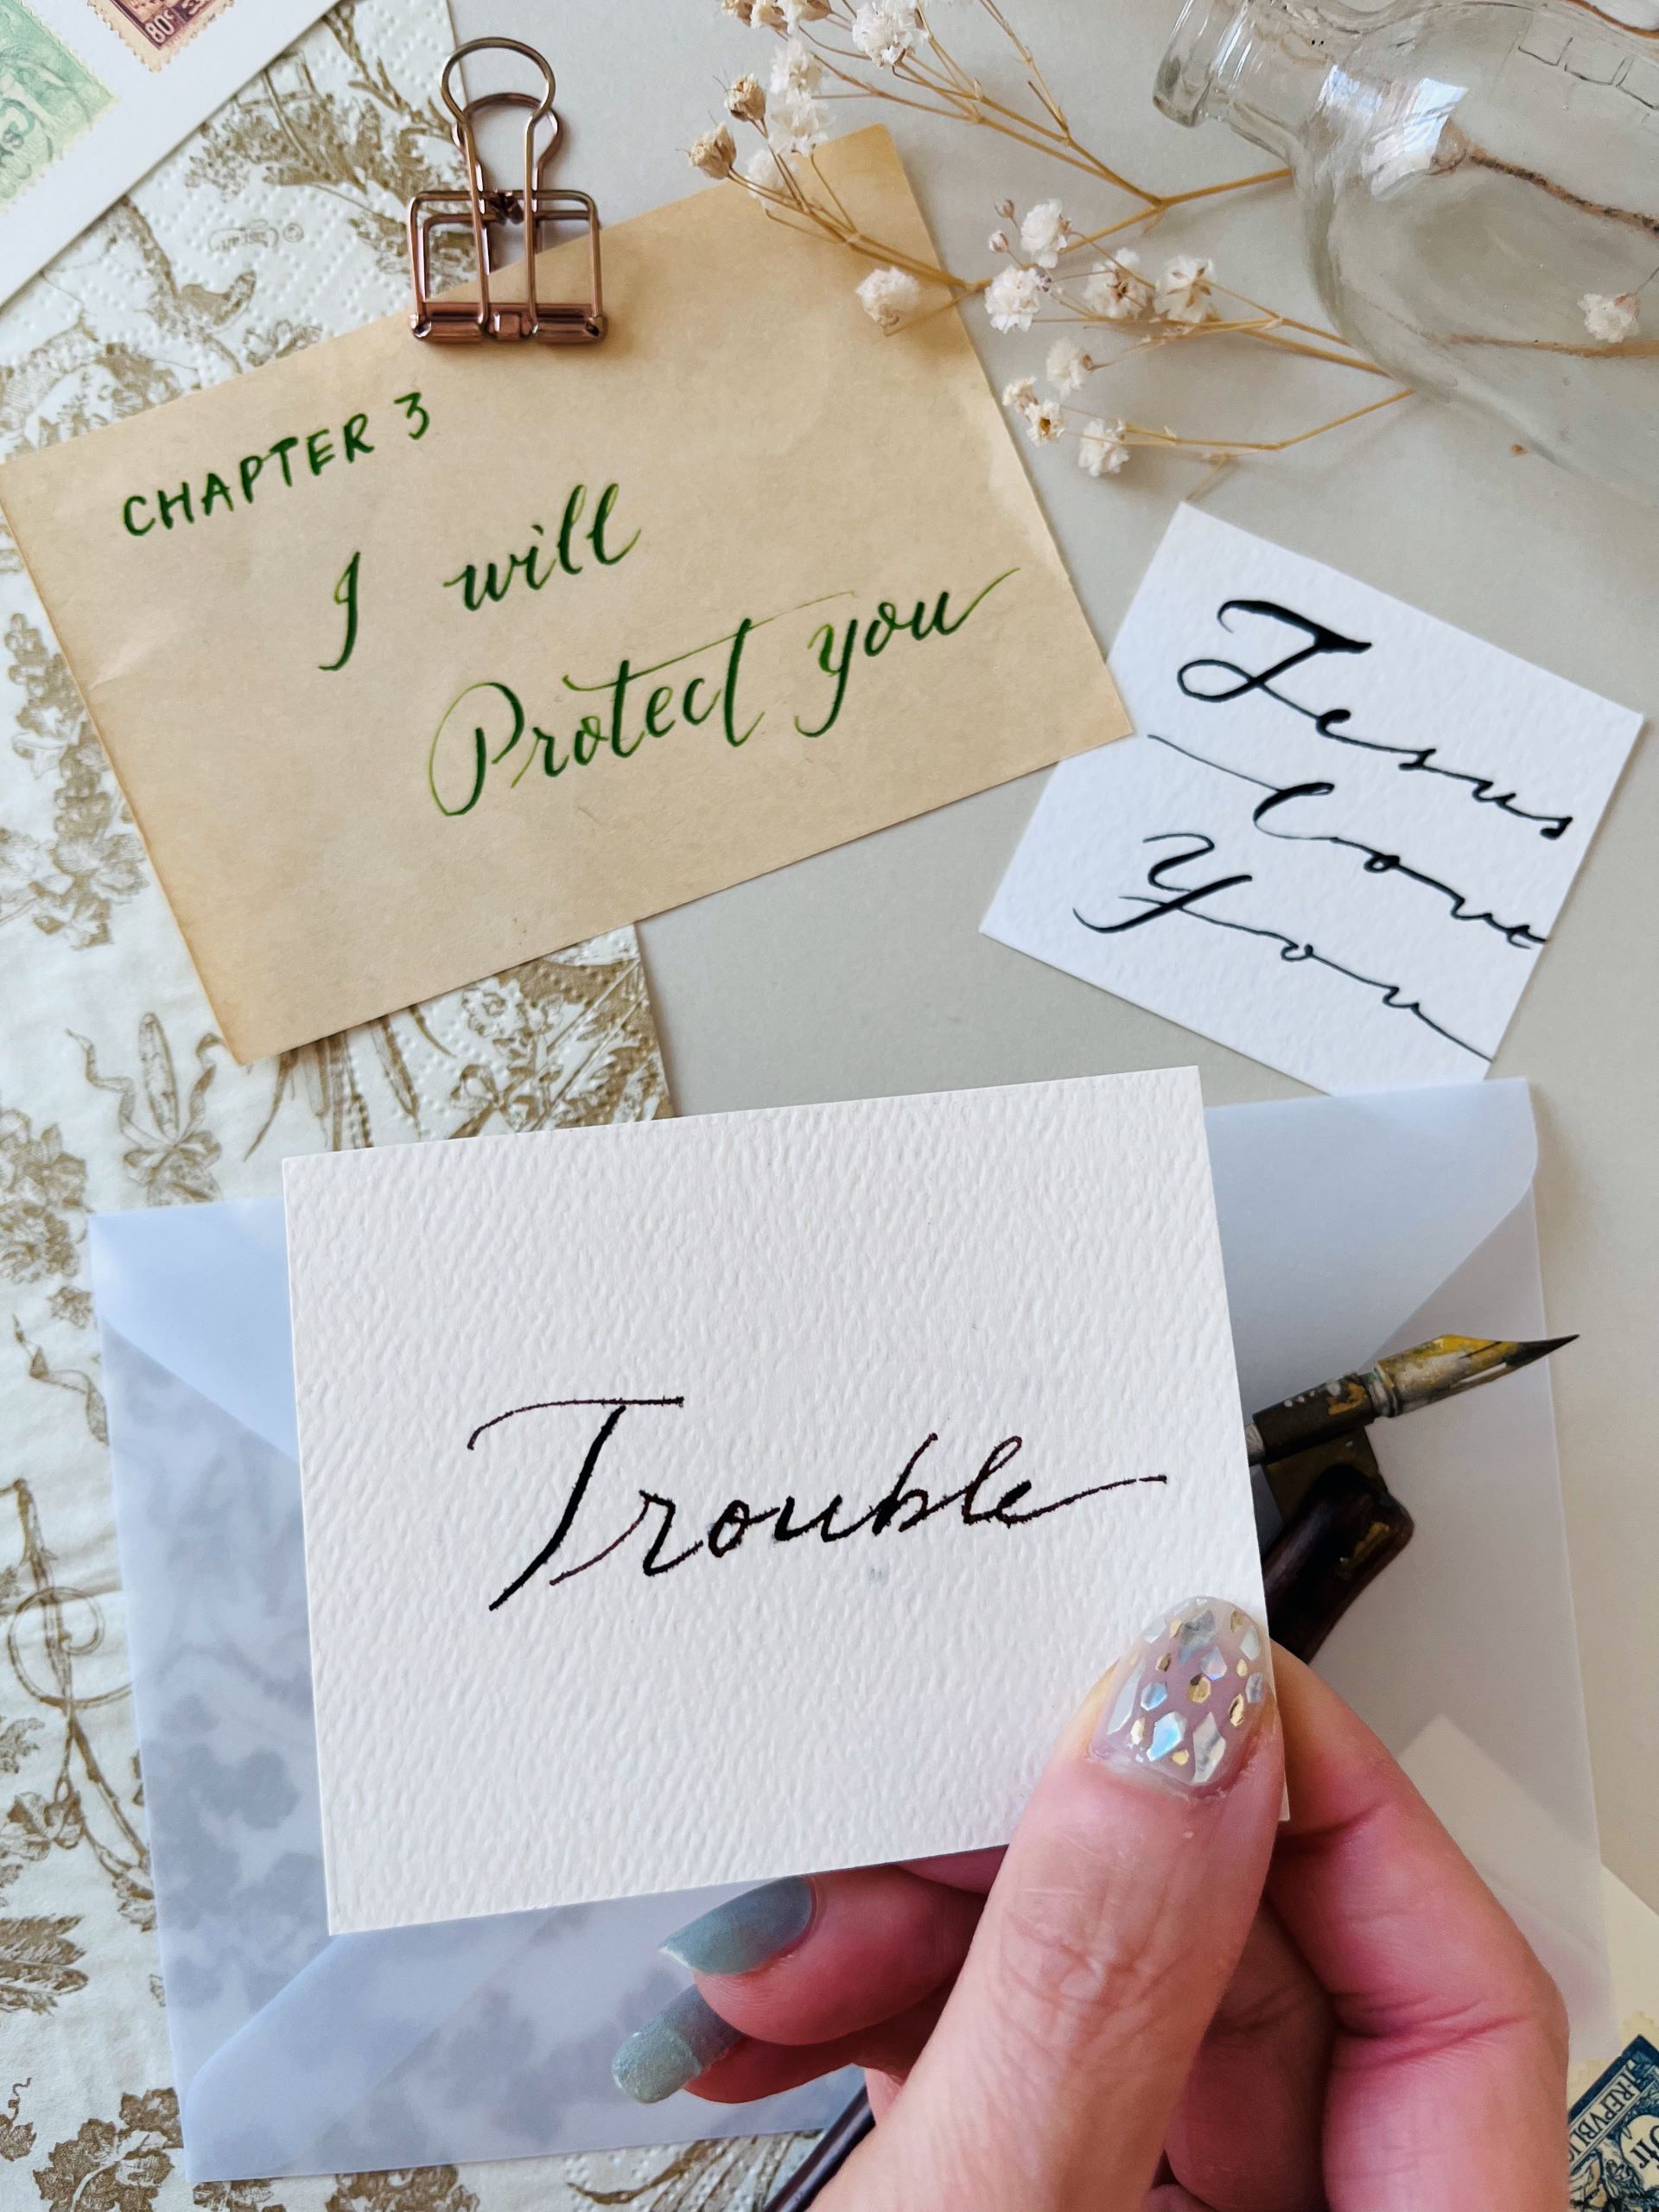 80c
CHAPTER 3
I will
Protect you
Jesus
Love
You
Trouble